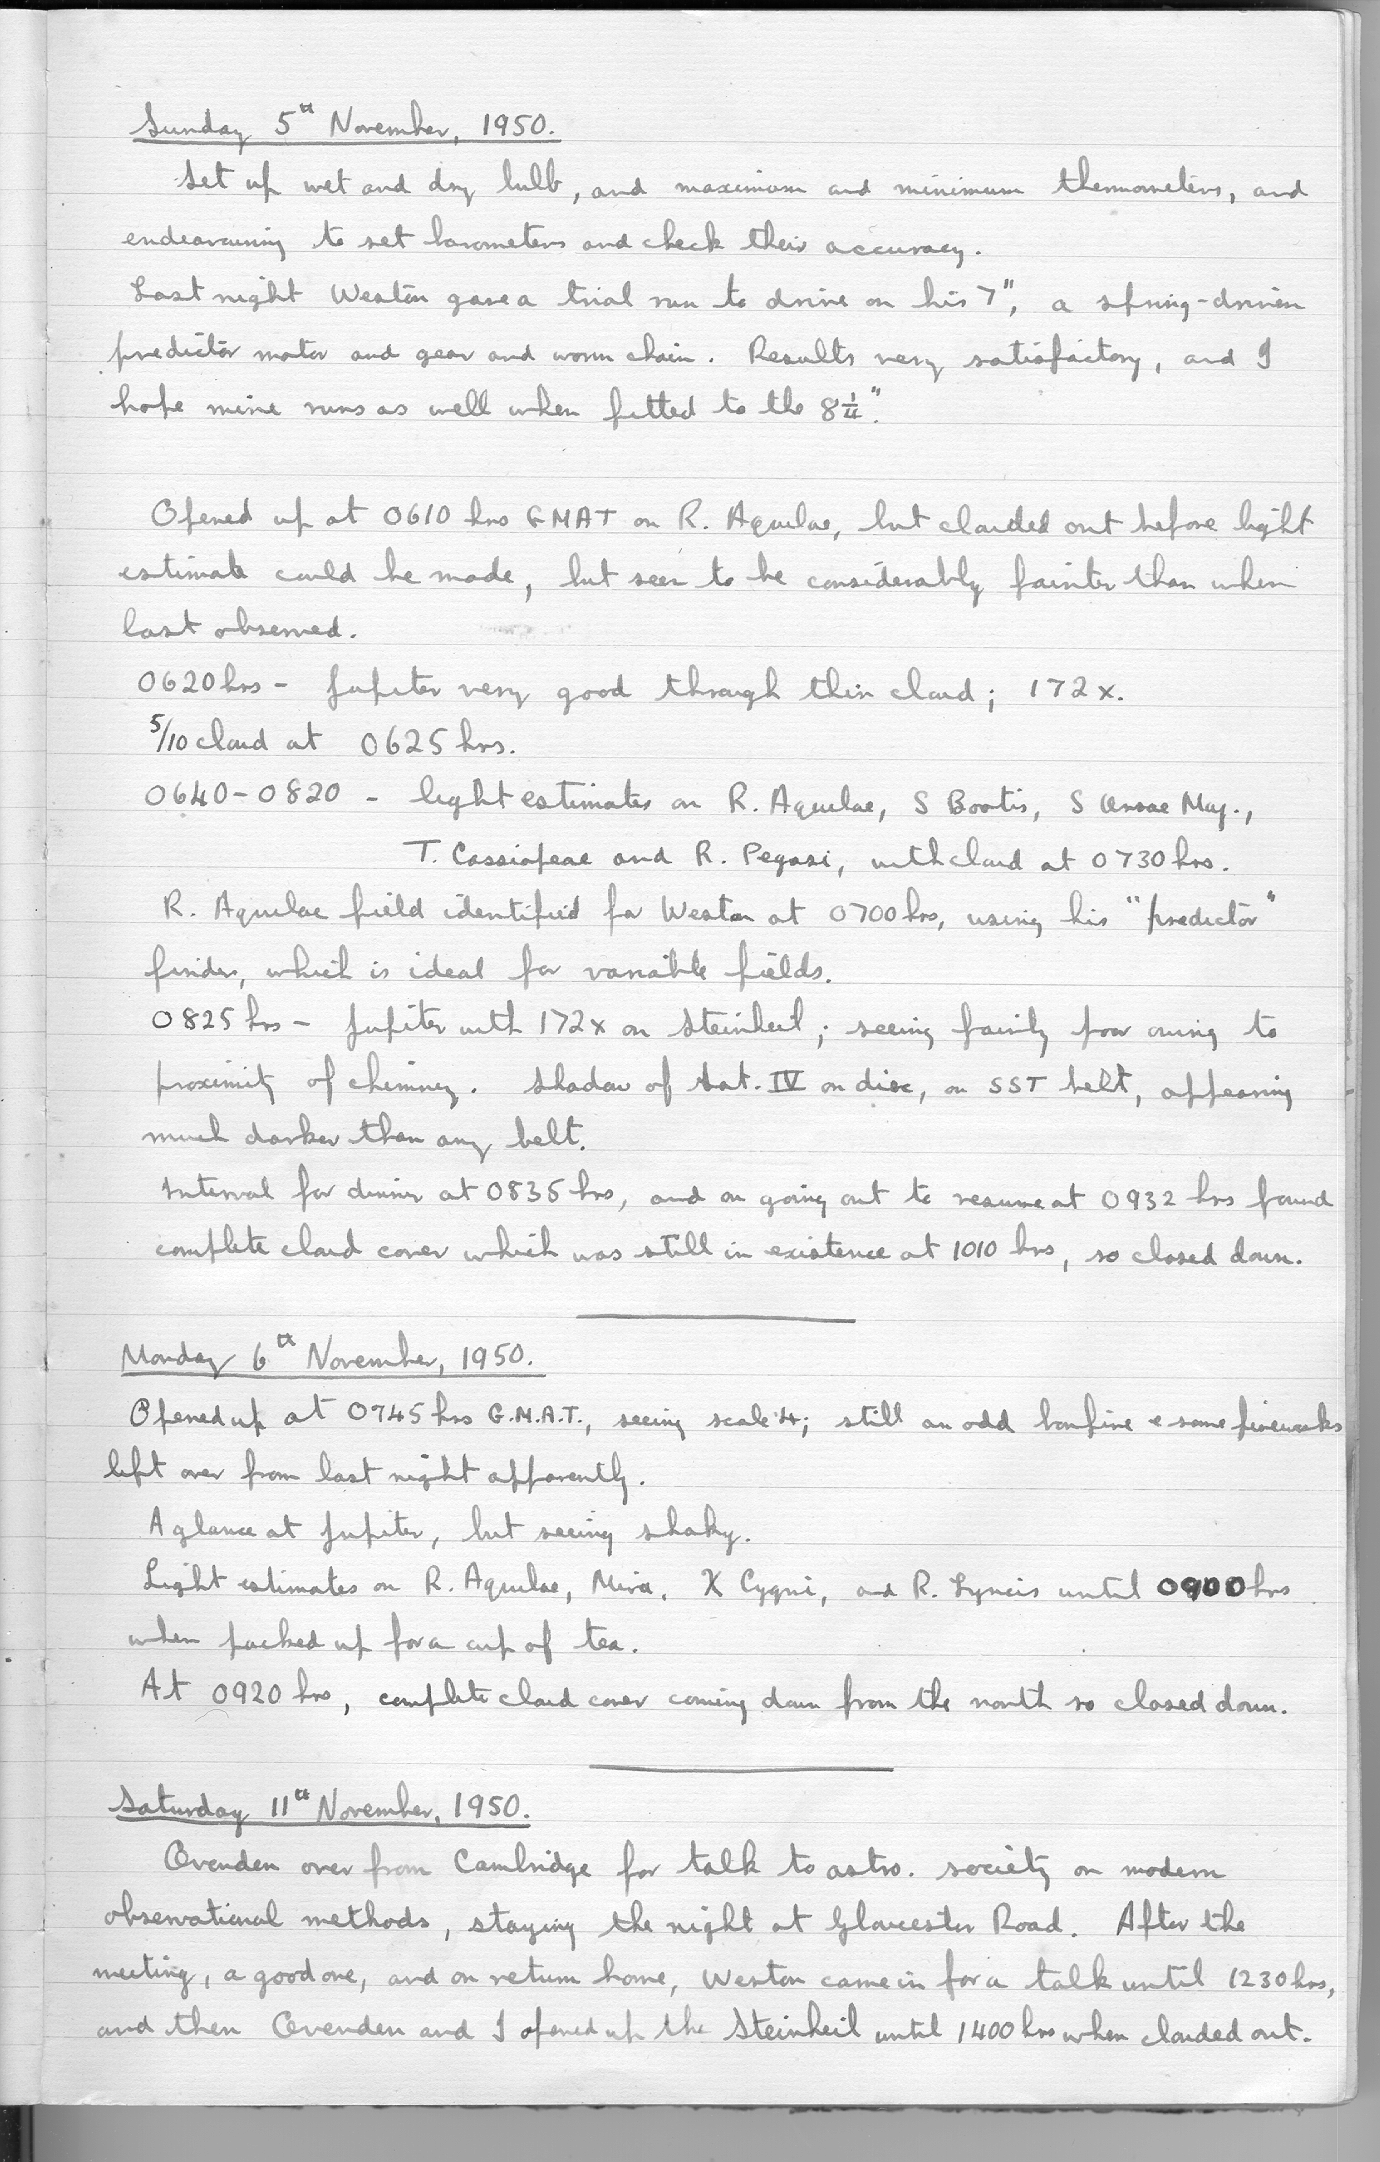 Sunday 5th November, 1950.
Set up wet and dry bulb, and maximum and minimum thermometers, and
endeavouring to set barometers and check their accuracy.
Last night Weston gave a trial run to drive on his 7", a spring-driven
predictor motor and gear and worm chain. Results very satisfactory, and I
hope mine runs as well when fitted to the 8¼".
Opened up at 0610 hrs GMAT on R. Aquilae, but clouded out before light
estimate could be made, but seen to be considerably fainter than when
last observed.
0620 hrs - Jupiter very good through thin cloud; 172x.
5/10 cloud at 0625 hrs.
0640-0820 - light estimates on R. Aquilae, S Bootis, S Ursae Maj.,
T. Cassiopeae and R. Pegasi, with cloud at 0730 hrs.
R. Aquilae field identified for Weston at 0700 hrs, using his "predictor"
finder, which is ideal for variable fields.
0825 hrs - Jupiter with 172x on Steinheil; seeing fairly poor owing to
proximity of chimney. Shadow of Sat. IV on disc, on SST belt, appearing
much darker than any belt.
Interval for dinner at 0835 hrs, and on going out to resume at 0932 hrs found
complete cloud cover which was still in existence at 1010 hrs, so closed down.
Monday 6th November, 1950.
Opened up at 0745 hrs G.M.A.T., seeing scale 4; still an odd bonfire & some fireworks
left over from last night apparently.
A glance at Jupiter, but seeing shaky.
Light estimates on R. Aquilae, Mira, X Cygni, and R. Lyncis until 0900 hrs
when packed up for a cup of tea.
At 0920 hrs, complete cloud cover coming down from the north so closed down.
Saturday 11th November, 1950.
Ovenden over from Cambridge for talk to astro. society on modern
observational methods, staying the night at Gloucester Road. After the
meeting, a good one, and on return home, Weston came in for a talk until 1230 hrs,
and then Ovenden and I opened up the Steinheil until 1400 hrs when clouded out.